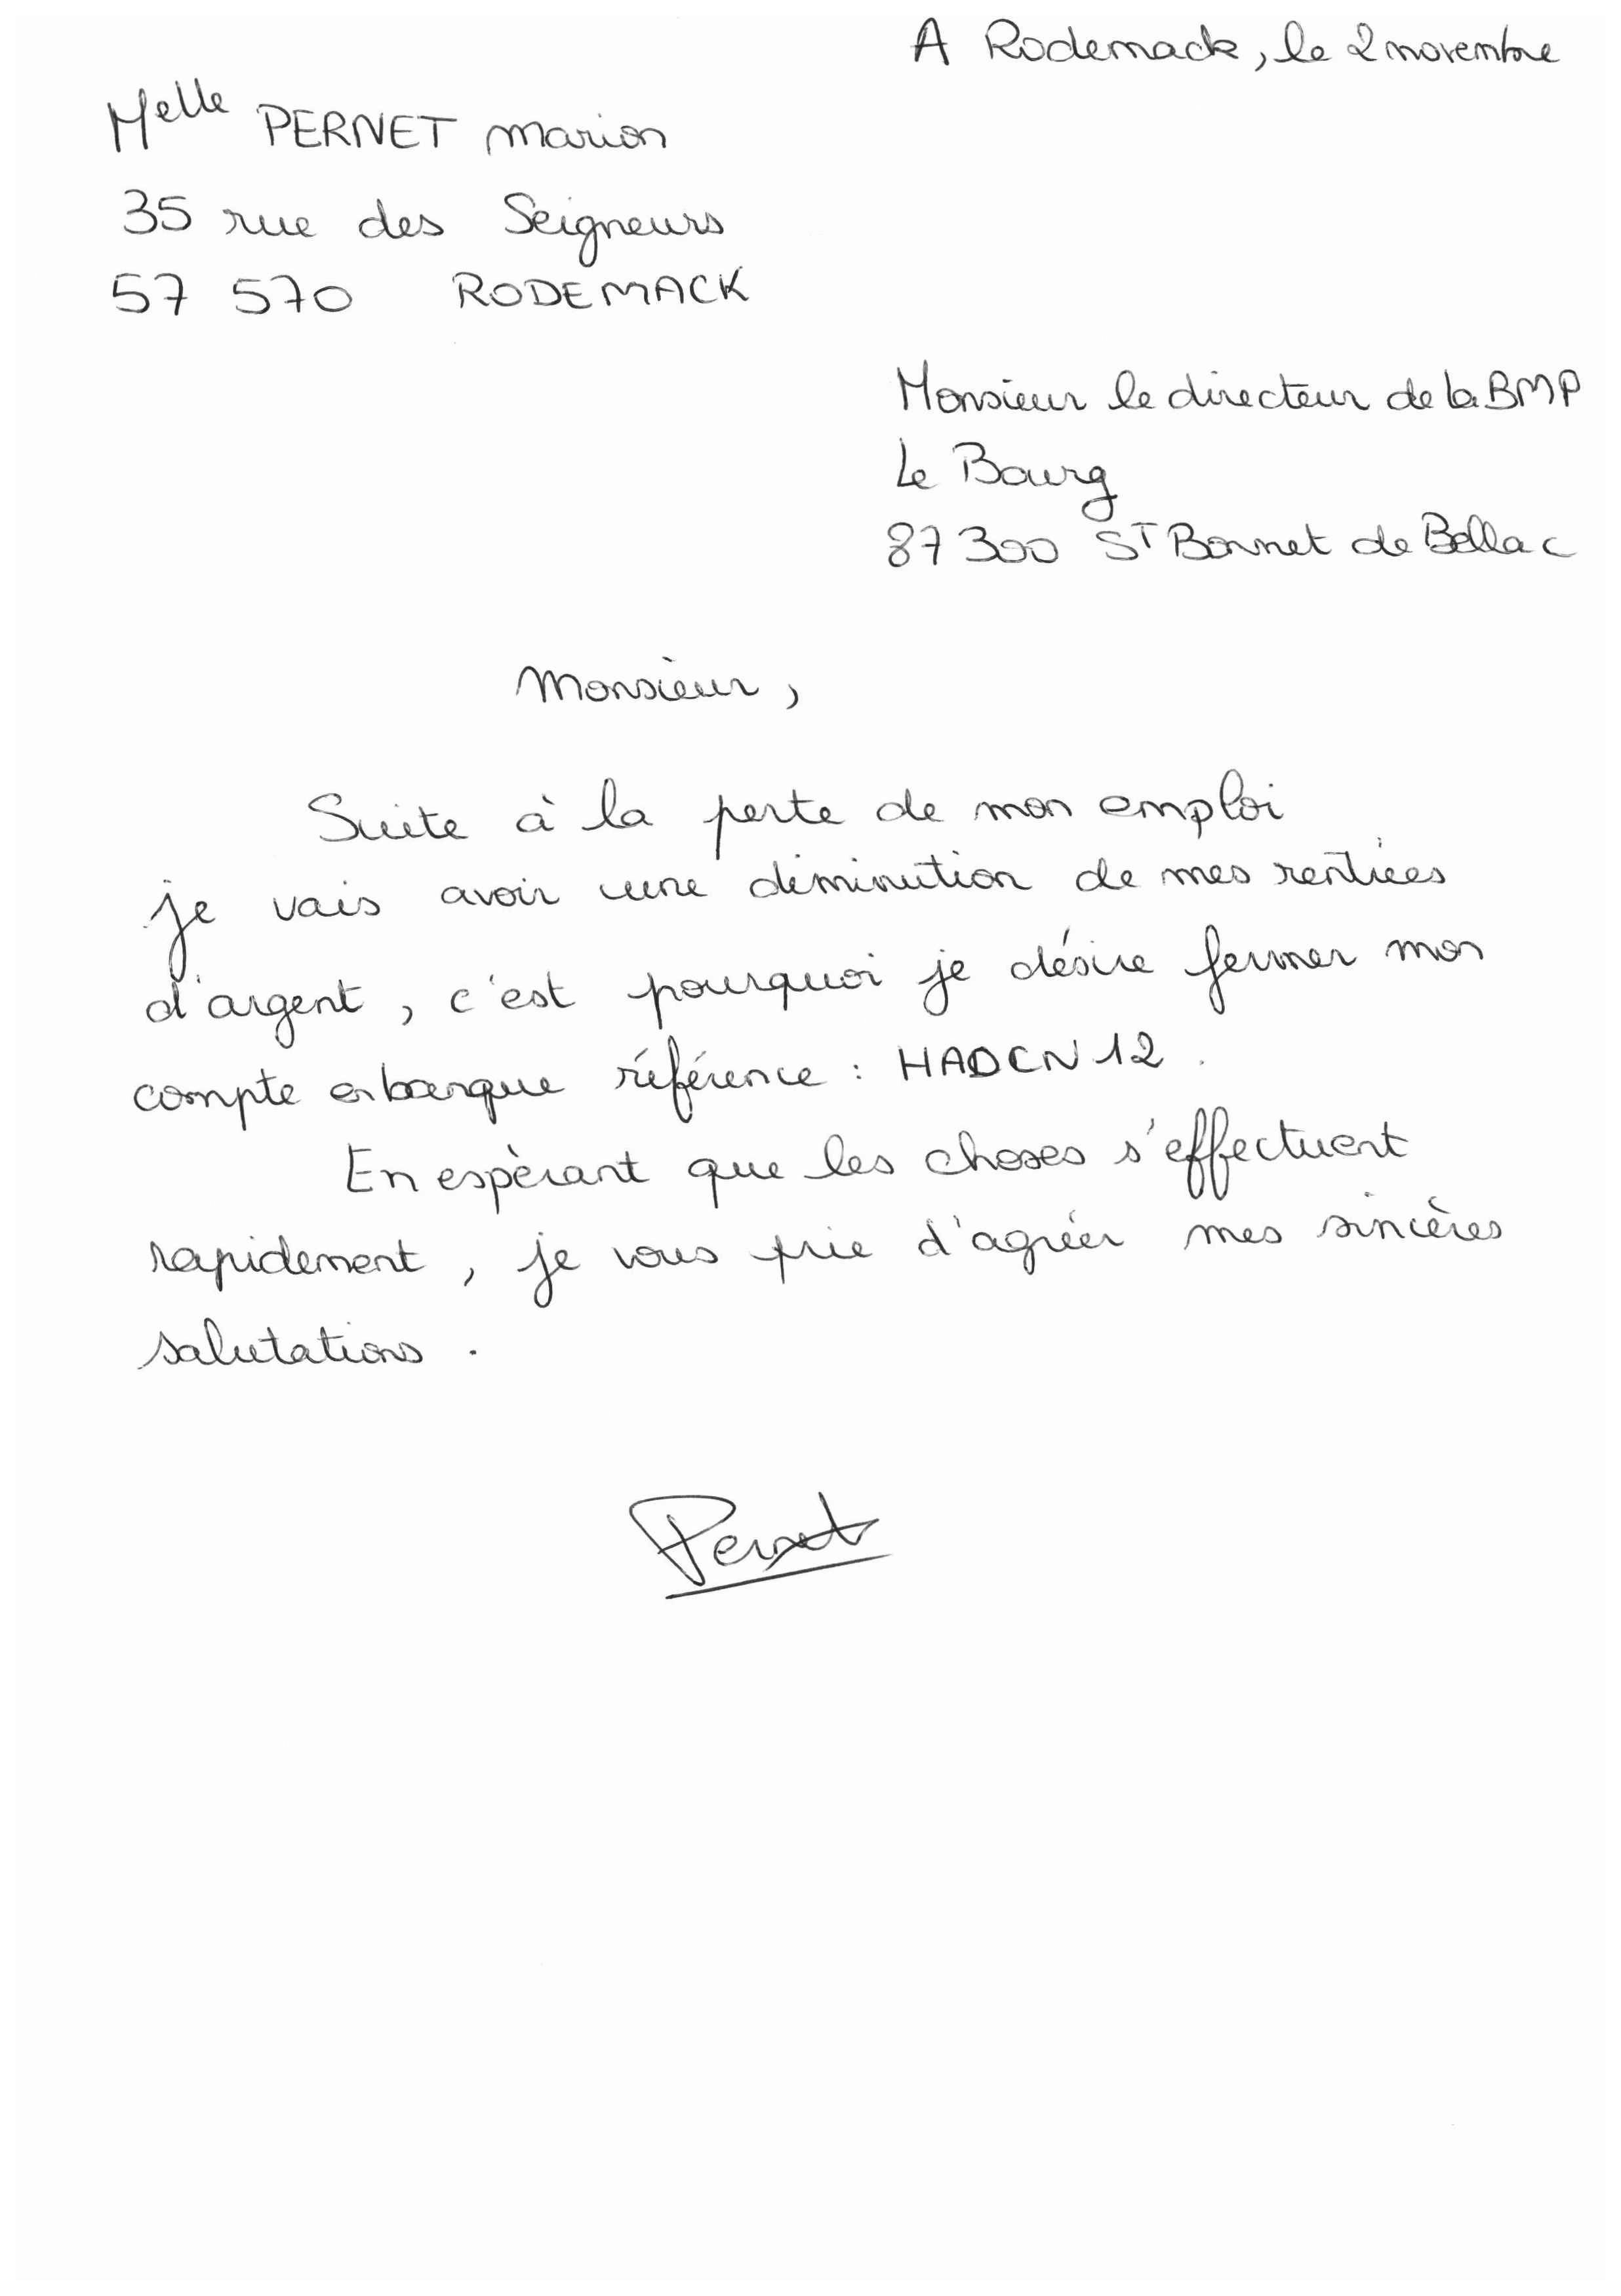 A Rodemack, le 2 novembre
Melle PERNET marion
35 rue des Seigneurs
57 570 RODEMACK
Monsieur le directeur de la BMP
Le Bourg
87 300 ST Bonnet de Bellac
Monsieur,
Suite à la perte de mon emploi
je vais avoir une diminution de mes rentrées
d'argent, c'est pourquoi je désire fermer mon
compte en banque référence : HADCN12.
En espèrant que les choses s'effectuent
rapidement, je vous prie d'agréer mes sincères
salutations.
Pernet